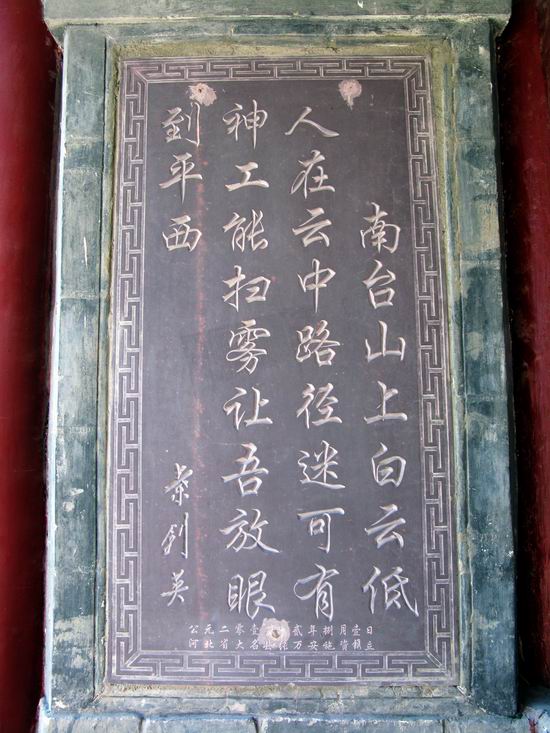 南台山上白云低
人在云中路径迷可有
神工能扫雾让吾放眼
到平西
英
公元二零壹贰年捌月壹日
河北省大名县万安施资立